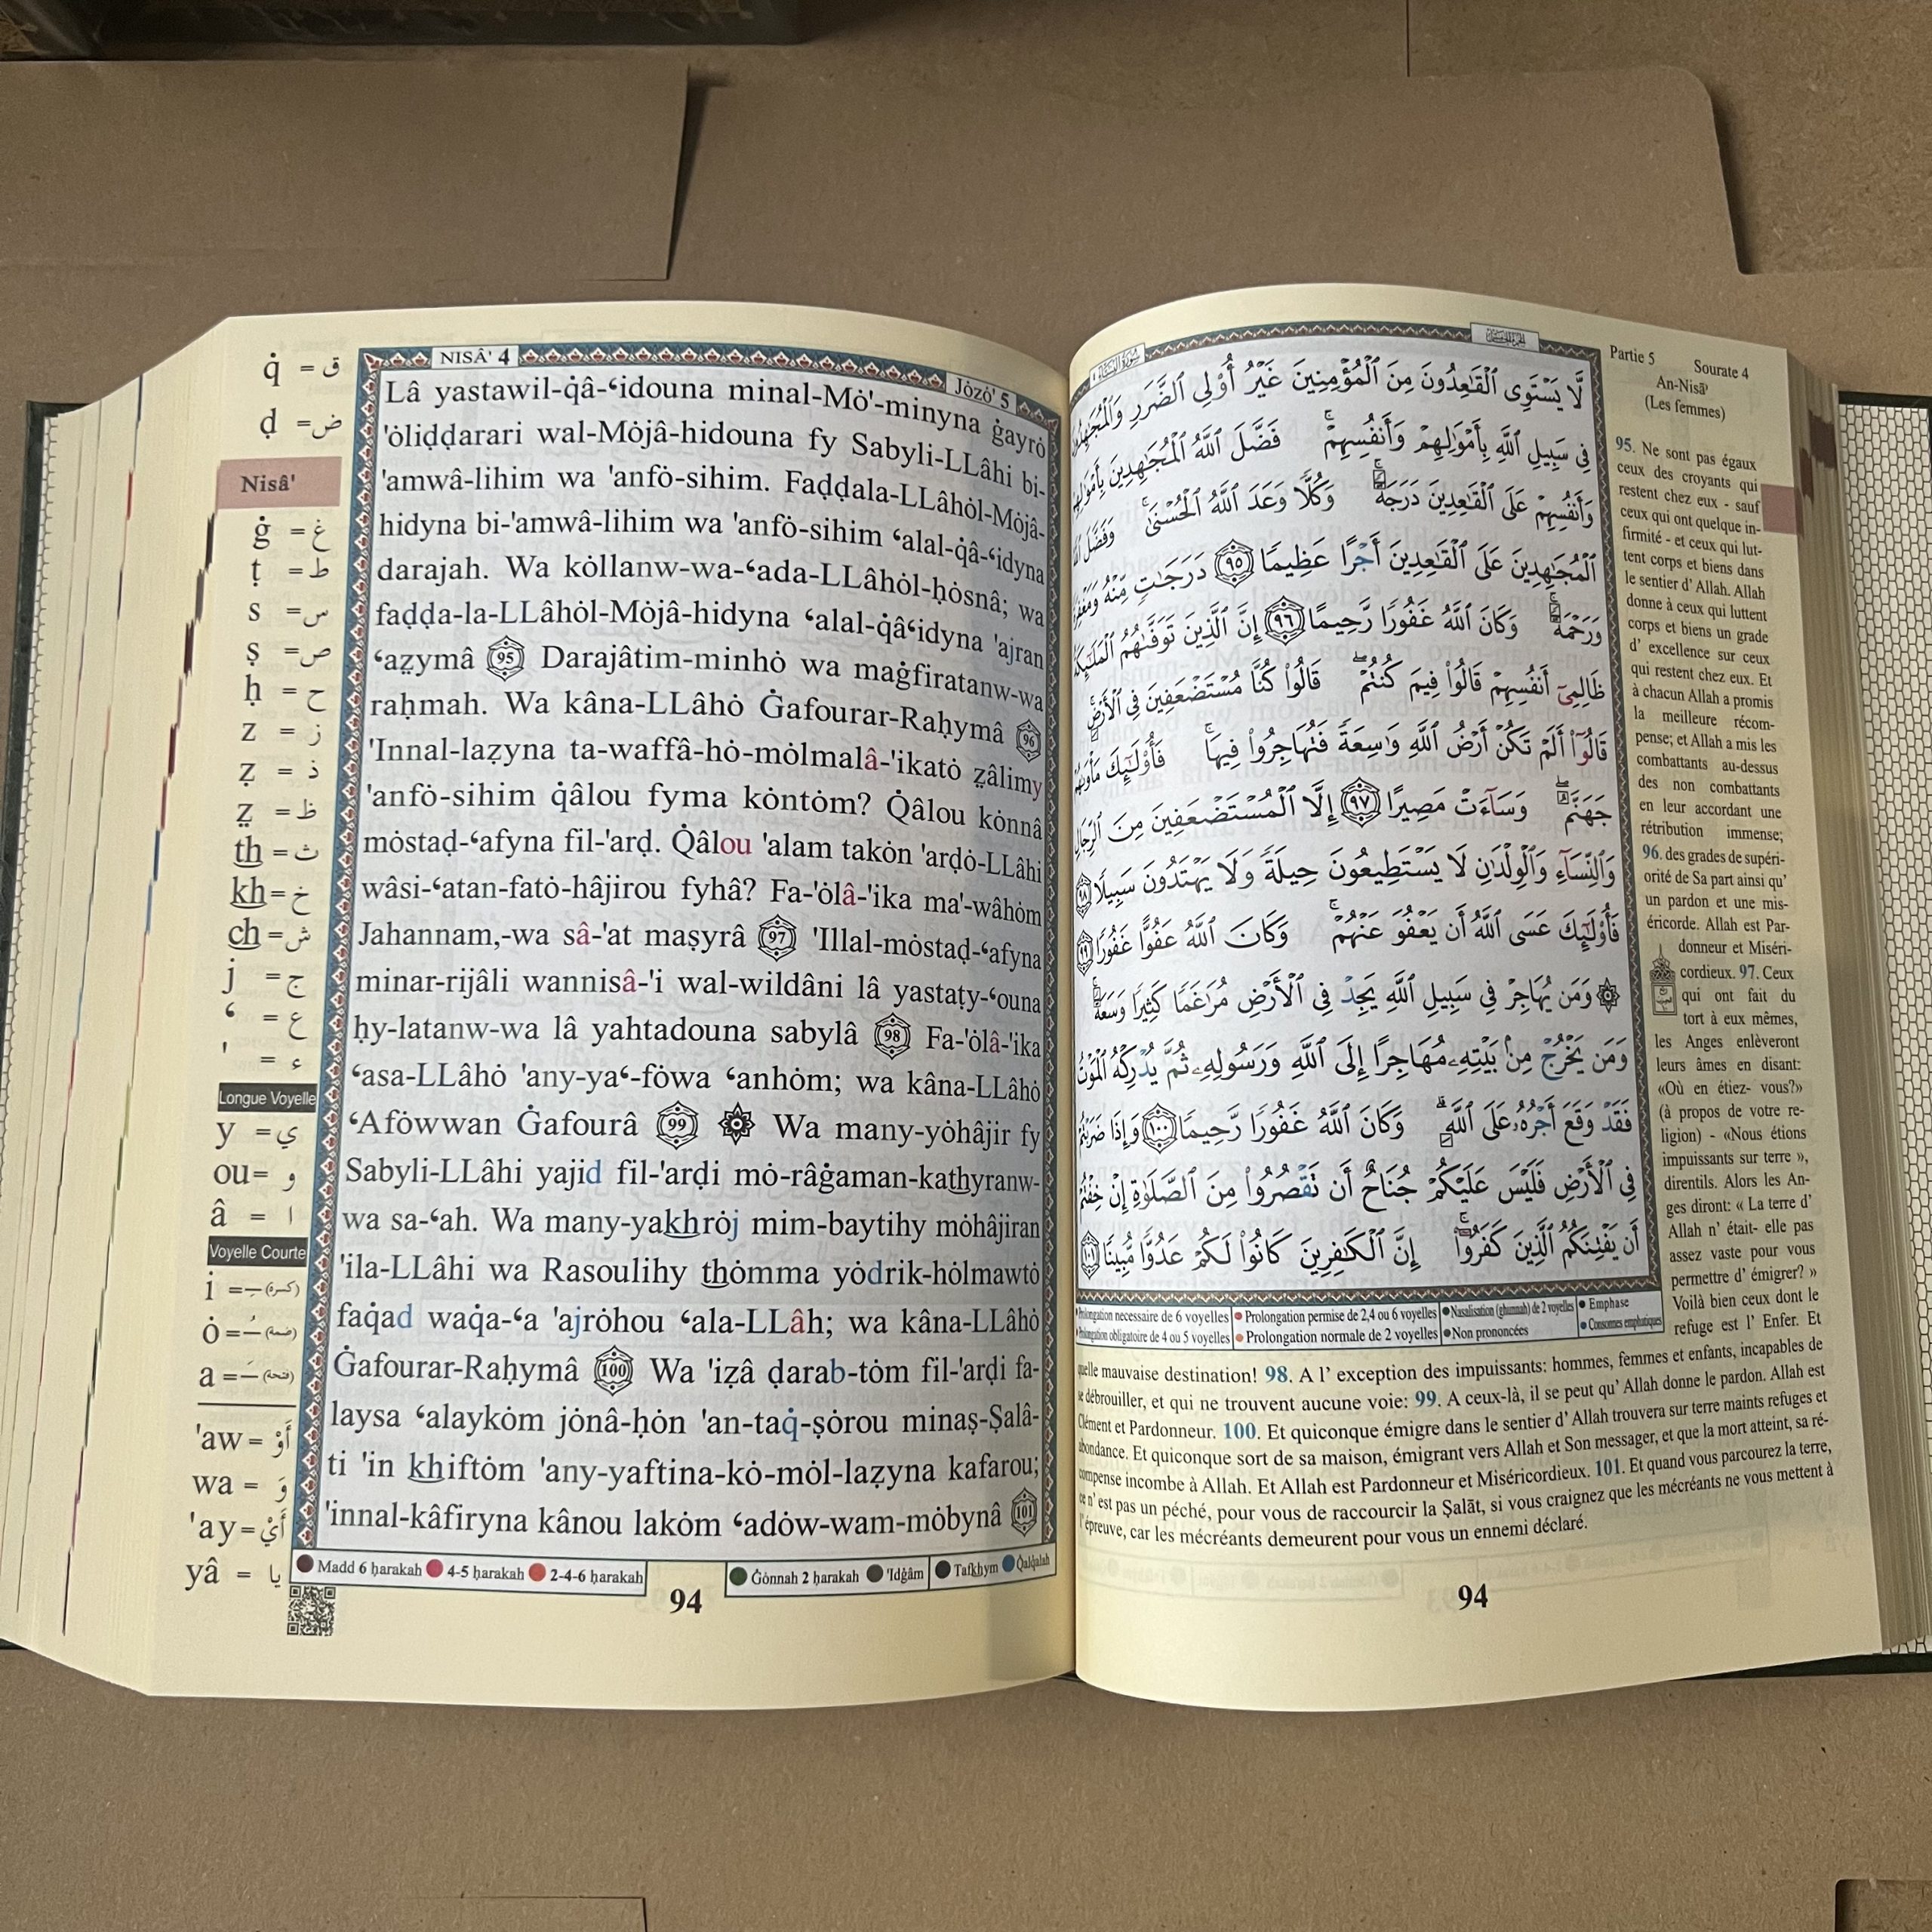 NISÂ' 4
Jȯzȯ' 5
Lâ yastawil-q̇â-ʻidouna minal-Mȯ'-minyna ġayrȯ
'ȯliḍḍarari wal-Mȯjâ-hidouna fy Sabyli-LLâhi bi-
'amwâ-lihim wa 'anfȯ-sihim. Faḍḍala-LLâhȯl-Mȯjâ-
hidyna bi-'amwâ-lihim wa 'anfȯ-sihim ʻalal-q̇â-ʻidyna
darajah. Wa kȯllanw-wa-ʻada-LLâhȯl-ḥȯsnâ; wa
faḍḍa-la-LLâhȯl-Mȯjâ-hidyna ʻalal-q̇âʻidyna 'ajran
ʻaẓymâ 95 Darajâtim-minhȯ wa maġfiratanw-wa
raḥmah. Wa kâna-LLâhȯ Ġafourar-Raḥymâ 96
'Innal-laẓyna ta-waffâ-hȯ-mȯlmalâ-'ikatȯ ẓ̤âlimy
'anfȯ-sihim q̇âlou fyma kȯntȯm? Q̇âlou kȯnnâ
mȯstaḍ-ʻafyna fil-'arḍ. Q̇âlou 'alam takȯn 'arḍȯ-LLâhi
wâsi-ʻatan-fatȯ-hâjirou fyhâ? Fa-'ȯlâ-'ika ma'-wâhȯm
Jahannam,-wa sâ-'at maṣyrâ 97 'Illal-mȯstaḍ-ʻafyna
minar-rijâli wannisâ-'i wal-wildâni lâ yastaṭy-ʻouna
ḥy-latanw-wa lâ yahtadouna sabylâ 98 Fa-'ȯlâ-'ika
ʻasa-LLâhȯ 'any-yaʻ-fȯwa ʻanhȯm; wa kâna-LLâhȯ
ʻAfȯwwan Ġafourâ 99 ۞ Wa many-yȯhâjir fy
Sabyli-LLâhi yajid fil-'arḍi mȯ-râġaman-kathyranw-
wa sa-ʻah. Wa many-yakhrȯj mim-baytihy mȯhâjiran
'ila-LLâhi wa Rasoulihy thȯmma yȯdrik-hȯlmawtȯ
faq̇ad waq̇a-ʻa 'ajrȯhou ʻala-LLâh; wa kâna-LLâhȯ
Ġafourar-Raḥymâ 100 Wa 'iẓâ ḍarab-tȯm fil-'arḍi fa-
laysa ʻalaykȯm jȯnâ-ḥȯn 'an-taq̇-ṣȯrou minaṣ-Ṣalâ-
ti 'in khiftȯm 'any-yaftina-kȯ-mȯl-laẓyna kafarou;
'innal-kâfiryna kânou lakȯm ʻadȯw-wam-mȯbynâ 101
Madd 6 ḥarakah 4-5 ḥarakah 2-4-6 ḥarakah
Ġȯnnah 2 ḥarakah 'Idġâm Tafkhym Q̇alq̇alah
94
q̇ = ق
ḍ = ض
Nisâ'
ġ = غ
ṭ = ط
s = س
ṣ = ص
ḥ = ح
z = ز
ẓ = ذ
ẓ̤ = ظ
th = ث
kh = خ
ch = ش
j = ج
ʻ = ع
' = ء
Longue Voyelle
y = ي
ou = و
â = ا
Voyelle Courte
i = ـِ (كسرة)
ȯ = ـُ (ضمة)
a = ـَ (فتحة)
'aw = أَوْ
wa = وَ
'ay = أَيْ
yâ = يا
لَّا يَسْتَوِى ٱلْقَٰعِدُونَ مِنَ ٱلْمُؤْمِنِينَ غَيْرُ أُو۟لِى ٱلضَّرَرِ
فِى سَبِيلِ ٱللَّهِ بِأَمْوَٰلِهِمْ وَأَنفُسِهِمْ ۚ فَضَّلَ ٱللَّهُ ٱلْمُجَٰهِدِينَ
وَأَنفُسِهِمْ عَلَى ٱلْقَٰعِدِينَ دَرَجَةً ۚ وَكُلًّا وَعَدَ ٱللَّهُ ٱلْحُسْنَىٰ ۚ
ٱلْمُجَٰهِدِينَ عَلَى ٱلْقَٰعِدِينَ أَجْرًا عَظِيمًا ٩٥ دَرَجَٰتٍ مِّنْهُ
وَرَحْمَةً ۚ وَكَانَ ٱللَّهُ غَفُورًا رَّحِيمًا ٩٦ إِنَّ ٱلَّذِينَ تَوَفَّىٰهُمُ
ظَالِمِىٓ أَنفُسِهِمْ قَالُوا۟ فِيمَ كُنتُمْ ۖ قَالُوا۟ كُنَّا مُسْتَضْعَفِينَ فِى ٱلْأَرْضِ ۚ
قَالُوٓا۟ أَلَمْ تَكُنْ أَرْضُ ٱللَّهِ وَٰسِعَةً فَتُهَاجِرُوا۟ فِيهَا ۚ فَأُو۟لَٰٓئِكَ
جَهَنَّمُ ۖ وَسَآءَتْ مَصِيرًا ٩٧ إِلَّا ٱلْمُسْتَضْعَفِينَ مِنَ ٱلرِّجَالِ
وَٱلنِّسَآءِ وَٱلْوِلْدَٰنِ لَا يَسْتَطِيعُونَ حِيلَةً وَلَا يَهْتَدُونَ سَبِيلًا ٩٨
فَأُو۟لَٰٓئِكَ عَسَى ٱللَّهُ أَن يَعْفُوَ عَنْهُمْ ۚ وَكَانَ ٱللَّهُ عَفُوًّا غَفُورًا ٩٩
۞ وَمَن يُهَاجِرْ فِى سَبِيلِ ٱللَّهِ يَجِدْ فِى ٱلْأَرْضِ مُرَٰغَمًا كَثِيرًا وَسَعَةً ۚ
وَمَن يَخْرُجْ مِنۢ بَيْتِهِۦ مُهَاجِرًا إِلَى ٱللَّهِ وَرَسُولِهِۦ ثُمَّ يُدْرِكْهُ ٱلْمَوْتُ
فَقَدْ وَقَعَ أَجْرُهُۥ عَلَى ٱللَّهِ ۗ وَكَانَ ٱللَّهُ غَفُورًا رَّحِيمًا ١٠٠ وَإِذَا ضَرَبْتُمْ
فِى ٱلْأَرْضِ فَلَيْسَ عَلَيْكُمْ جُنَاحٌ أَن تَقْصُرُوا۟ مِنَ ٱلصَّلَوٰةِ إِنْ خِفْتُمْ
أَن يَفْتِنَكُمُ ٱلَّذِينَ كَفَرُوٓا۟ ۚ إِنَّ ٱلْكَٰفِرِينَ كَانُوا۟ لَكُمْ عَدُوًّا مُّبِينًا ١٠١
Prolongation necessaire de 6 voyelles Prolongation permise de 2,4 ou 6 voyelles Nasalisation (ghunnah) de 2 voyelles Emphase
Prolongation obligatoire de 4 ou 5 voyelles Prolongation normale de 2 voyelles Non prononcées Consonnes emphatiques
Partie 5 Sourate 4
An-Nisā'
(Les femmes)
95. Ne sont pas égaux
ceux des croyants qui
restent chez eux - sauf
ceux qui ont quelque in-
firmité - et ceux qui lut-
tent corps et biens dans
le sentier d' Allah. Allah
donne à ceux qui luttent
corps et biens un grade
d' excellence sur ceux
qui restent chez eux. Et
à chacun Allah a promis
la meilleure récom-
pense; et Allah a mis les
combattants au-dessus
des non combattants
en leur accordant une
rétribution immense;
96. des grades de supéri-
orité de Sa part ainsi qu'
un pardon et une mis-
éricorde. Allah est Par-
donneur et Miséri-
cordieux. 97. Ceux
qui ont fait du
tort à eux mêmes,
les Anges enlèveront
leurs âmes en disant:
«Où en étiez- vous?»
(à propos de votre re-
ligion) - «Nous étions
impuissants sur terre »,
direntils. Alors les An-
ges diront: « La terre d'
Allah n' était- elle pas
assez vaste pour vous
permettre d' émigrer? »
Voilà bien ceux dont le
refuge est l' Enfer. Et
quelle mauvaise destination! 98. A l' exception des impuissants: hommes, femmes et enfants, incapables de
se débrouiller, et qui ne trouvent aucune voie: 99. A ceux-là, il se peut qu' Allah donne le pardon. Allah est
Clément et Pardonneur. 100. Et quiconque émigre dans le sentier d' Allah trouvera sur terre maints refuges et
abondance. Et quiconque sort de sa maison, émigrant vers Allah et Son messager, et que la mort atteint, sa ré-
compense incombe à Allah. Et Allah est Pardonneur et Miséricordieux. 101. Et quand vous parcourez la terre,
ce n' est pas un péché, pour vous de raccourcir la Ṣalāt, si vous craignez que les mécréants ne vous mettent à
l' épreuve, car les mécréants demeurent pour vous un ennemi déclaré.
94